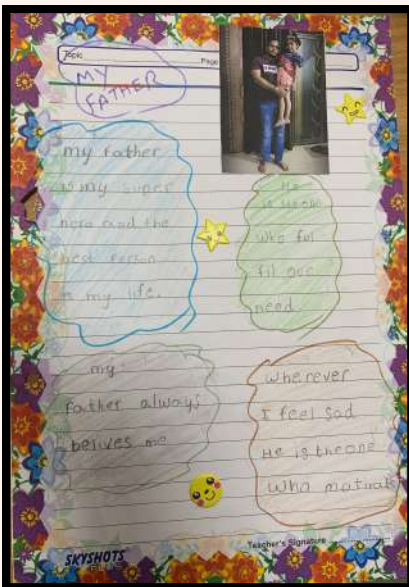 Topic
Page
MY
FATHER
my father
is my super
hero and the
best person
in my life.
He
is the one
who ful
fil our
need
my
father always
belives me
wherever
I feel sad
He is the one
who motivate
Teacher's Signature
SKYSHOTS